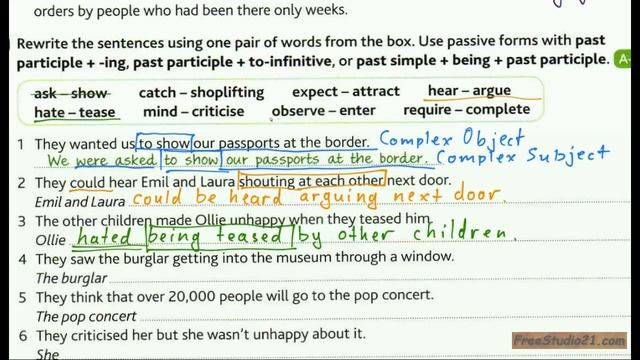 orders by people who had been there only weeks.
Rewrite the sentences using one pair of words from the box. Use passive forms with past
participle + -ing, past participle + to-infinitive, or past simple + being + past participle. A
ask – show catch – shoplifting expect – attract hear – argue
hate – tease mind – criticise observe – enter require – complete
1 They wanted us to show our passports at the border. Complex Object
We were asked to show our passports at the border. Complex Subject
2 They could hear Emil and Laura shouting at each other next door.
Emil and Laura could be heard arguing next door.
3 The other children made Ollie unhappy when they teased him.
Ollie hated being teased by other children.
4 They saw the burglar getting into the museum through a window.
The burglar
5 They think that over 20,000 people will go to the pop concert.
The pop concert
6 They criticised her but she wasn't unhappy about it.
She
FreeStudio21.com